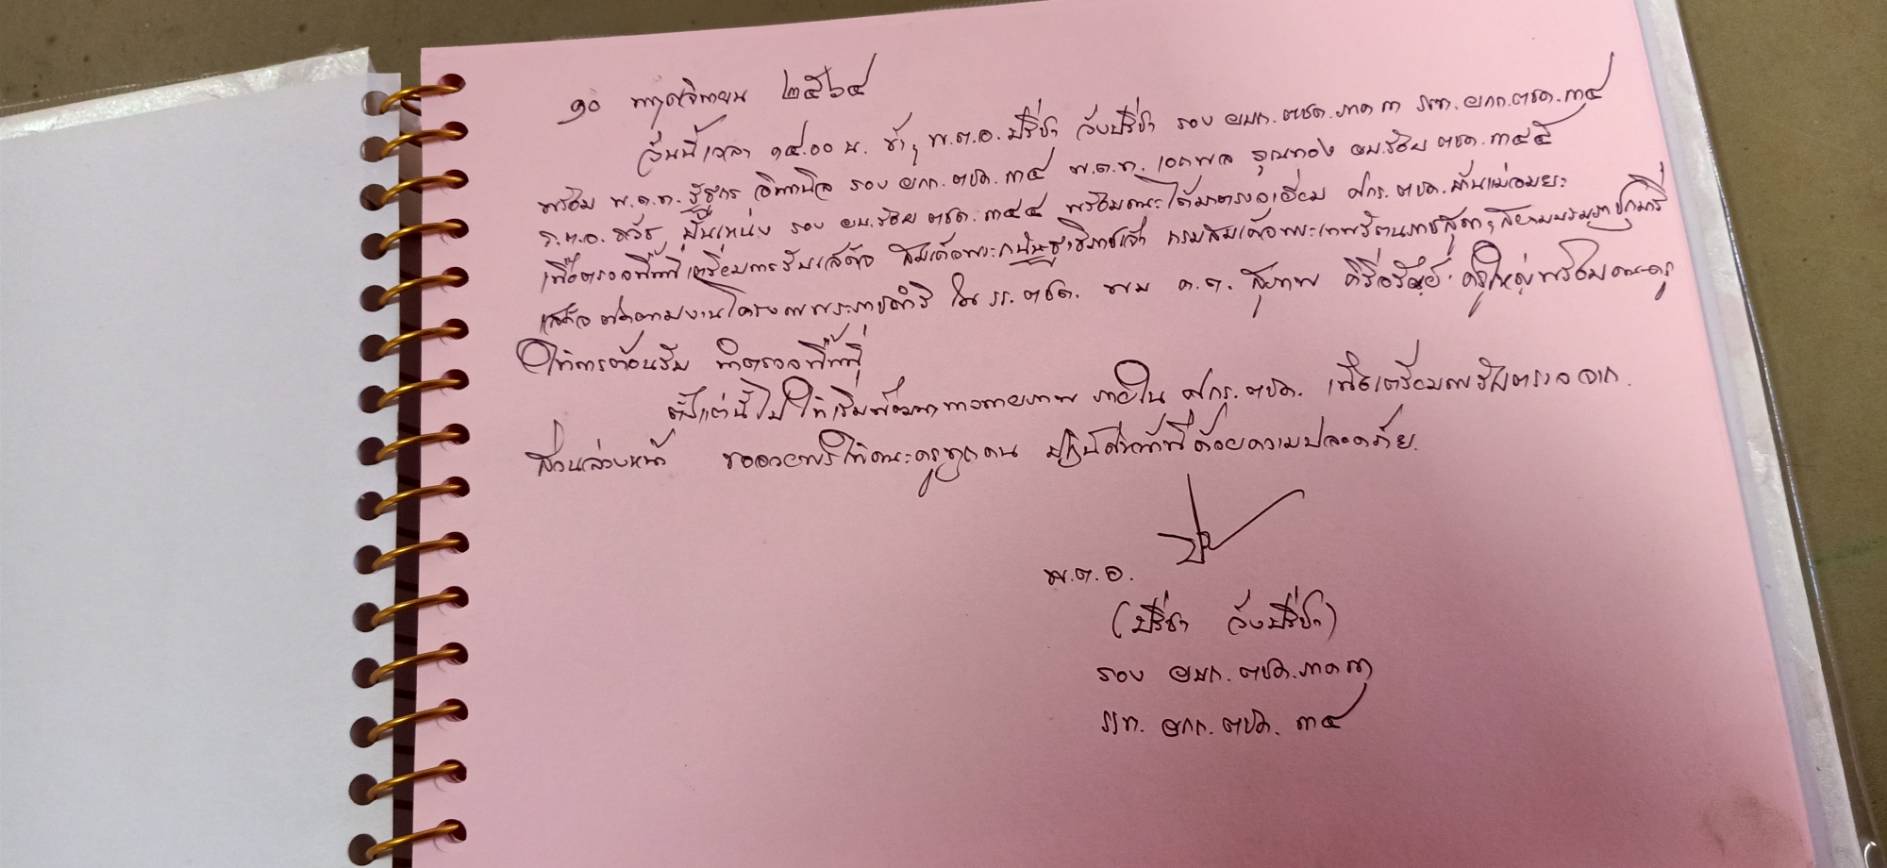 ๑๐ พฤศจิกายน ๒๕๖๔
วันนี้เวลา ๑๔.๐๐ น. ข้าฯ พ.ต.อ. ปรีชา วังปรีชา รอง ผบก.ตชด.ภาค ๓ รรท. ผกก.ตชด.๓๔
พร้อม พ.ต.ท. รอง ผกก.ตชด.๓๔ พ.ต.ท. เอกพล ผบ.ร้อย ตชด.๓๔๕
ร.ต.อ. ธวัช ปั้นเหน่ง รอง ผบ.ร้อย ตชด.๓๔๔ พร้อมคณะได้มาตรวจเยี่ยม ศกร.ตชด.
เพื่อตรวจพื้นที่เตรียมการรับเสด็จ สมเด็จพระกนิษฐาธิราชเจ้า กรมสมเด็จพระเทพรัตนราชสุดาฯ สยามบรมราชกุมารี
เสด็จติดตามงานโครงการพระราชดำริ ใน รร.ตชด. พบ ด.ต. สุภาพ ครูใหญ่พร้อมคณะครู
ให้การต้อนรับ นำตรวจพื้นที่
ตั้งแต่นี้ไป ให้เริ่มพัฒนาทางกายภาพ ภายใน ศกร.ตชด. เพื่อเตรียมการรับตรวจจาก
ส่วนล่วงหน้า ขออวยพรให้คณะครูทุกคน ปฏิบัติหน้าที่ด้วยความปลอดภัย.
พ.ต.อ.
(ปรีชา วังปรีชา)
รอง ผบก.ตชด.ภาค ๓
รรท. ผกก.ตชด. ๓๔